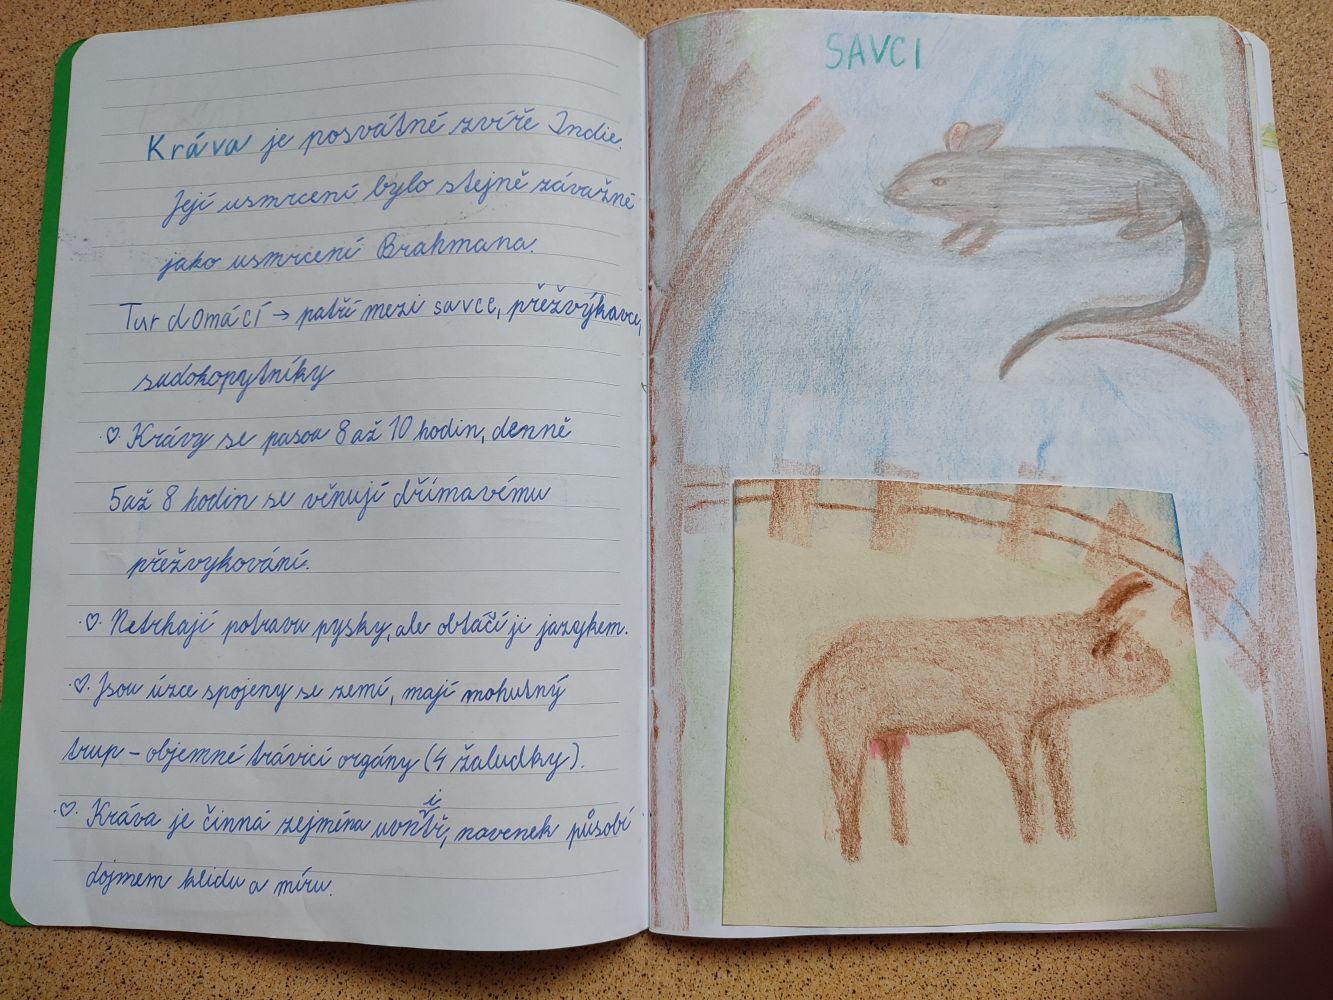 Kráva je posvátné zvíře Indie.
Její usmrcení bylo stejně závažné
jako usmrcení Brahmana.
Tur domácí → patří mezi savce, přežvýkavce,
sudokopytníky
♡ Krávy se pasou 8 až 10 hodin, denně
5 až 8 hodin se věnují dřímavému
přežvykování.
♡ Netrhají potravu pysky, ale obtáčí ji jazykem.
♡ Jsou úzce spojeny se zemí, mají mohutný
trup – objemné trávicí orgány (4 žaludky).
♡ Kráva je činná zejména uvnitř, navenek působí
dojmem klidu a míru.
SAVCI